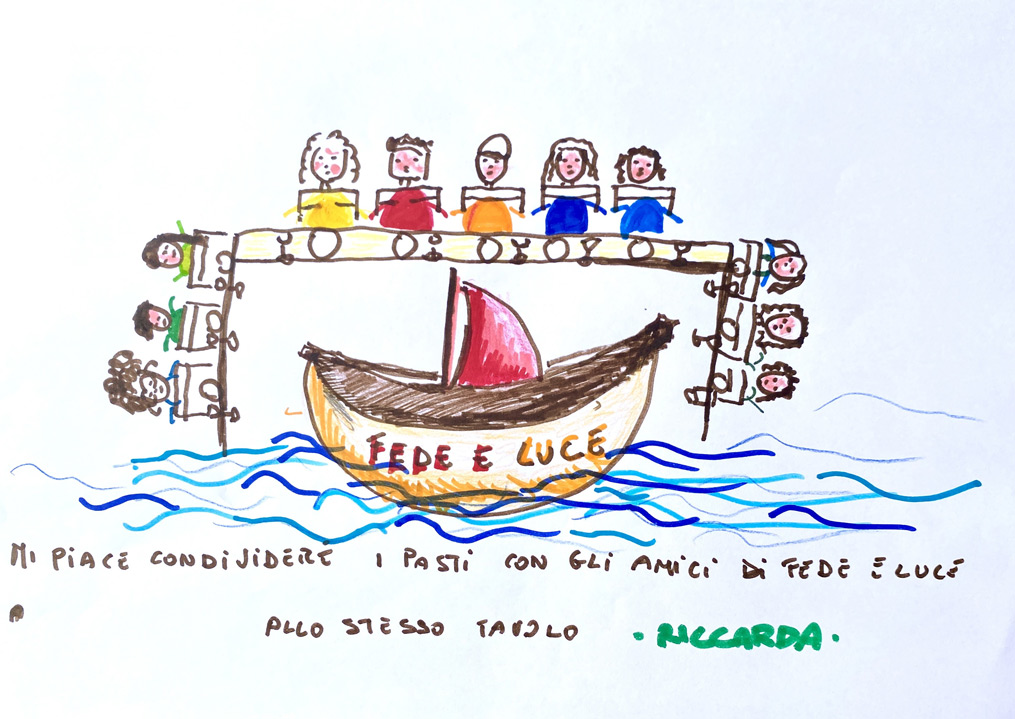 FEDE E LUCE
MI PIACE CONDIJIDERE I PASTI CON GLI AMICI DI FEDE E LUCE
ALLO STESSO TAVOLO • RICCARDA •